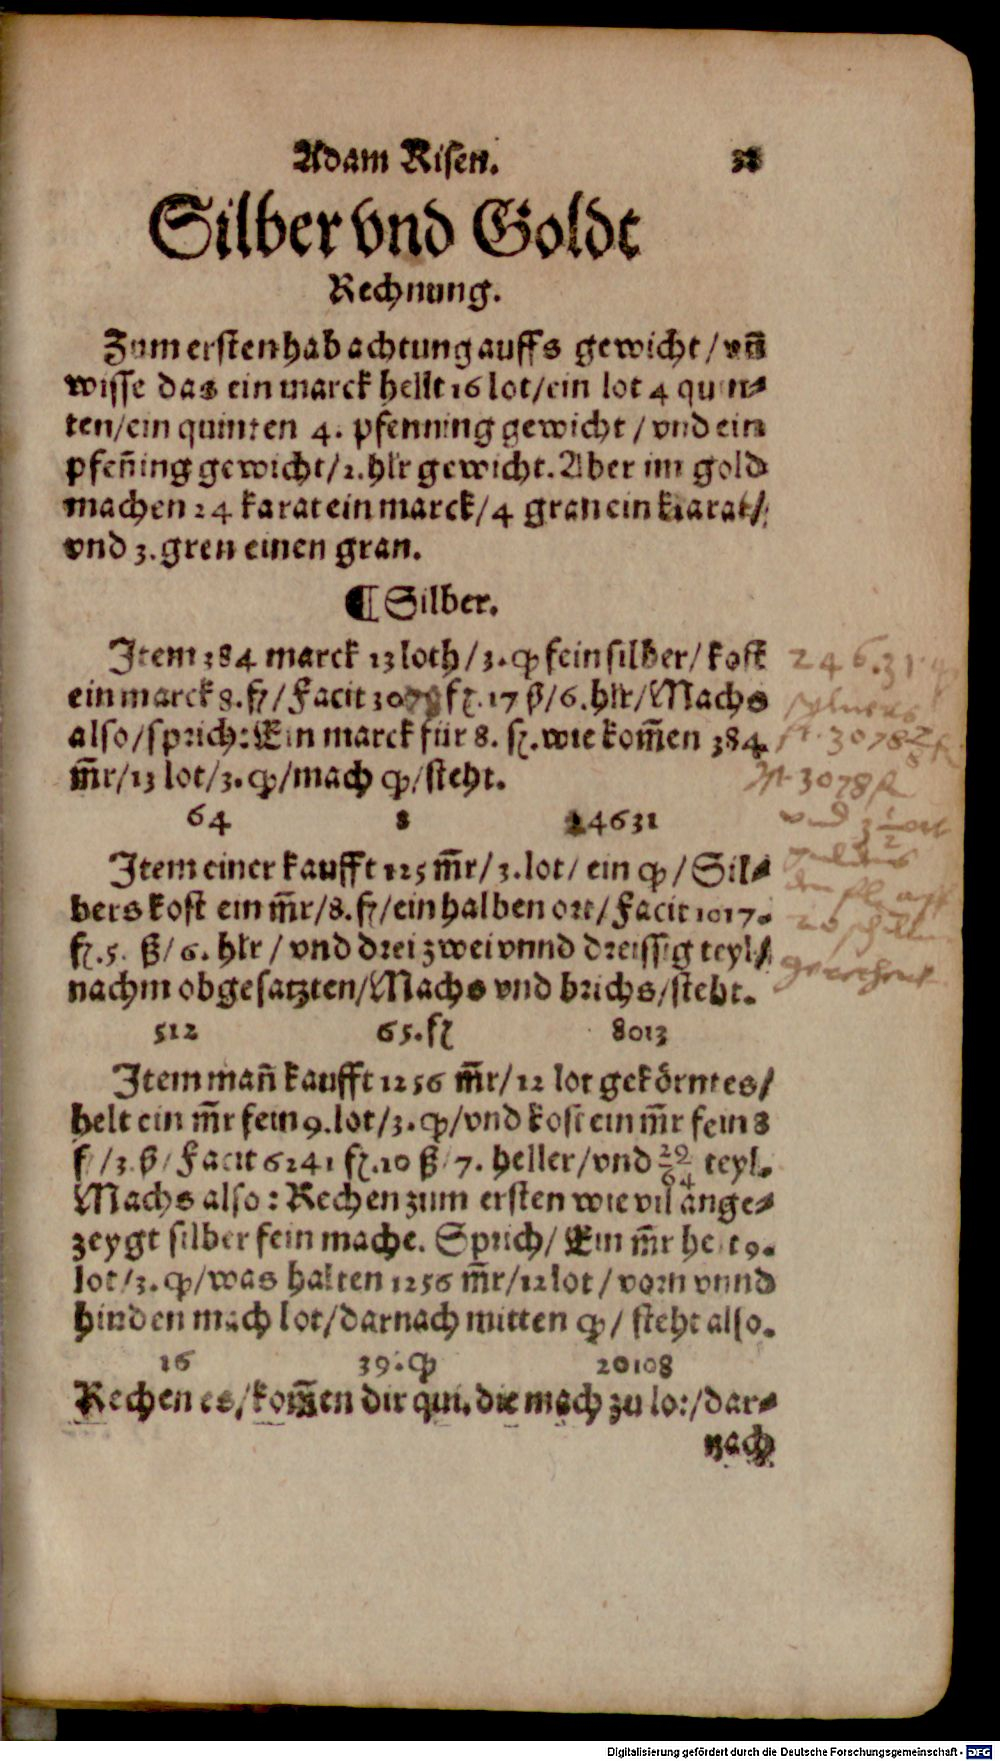 Adam Risen. 38
Silber vnd Goldt
Rechnung.
Zum ersten hab achtung auffs gewicht / vn̄
wisse das ein marck hellt 16 lot/ein lot 4 quin⸗
ten/ein quinten 4. pfenning gewicht / vnd ein
pfen̄ing gewicht/2. hlr gewicht. Aber im gold
machen 24 karat ein marck/4 gran ein karat/
vnd 3. gren einen gran.
¶ Silber.
Item 384 marck 13 loth/3. qͥ fein silber/kost
ein marck 8. fl/Facit 3078 fl. 17 ß/6. hlr/Machs
also/sprich: Ein marck für 8. fl. wie kom̄en 384
m̄r/13 lot/3. qͥ/mach qͥ/steht.
64 8 24631
Item einer kaufft 125 m̄r/3. lot/ein qͥ/Sil⸗
bers kost ein m̄r/8. fl/ein halben ort/Facit 1017.
fl. 5. ß/6. hlr/vnd drei zwei vnnd dreissig teyl/
nachm obgesatzten/Machs vnd brichs/steht.
512 65. fl 8013
Item man̄ kaufft 1256 m̄r/12 lot gekörntes/
helt ein m̄r fein 9. lot/3. qͥ/vnd kost ein m̄r fein 8
fl/3. ß/Facit 6241 fl. 10 ß/7. heller/vnd 29/64 teyl.
Machs also: Rechen zum ersten wie vil ange⸗
zeygt silber fein mache. Sprich/Ein m̄r helt 9.
lot/3. qͥ/was halten 1256 m̄r/12 lot/vorn vnnd
hinden mach lot/darnach mitten qͥ/steht also.
16 39. qͥ 20108
Rechen es/kom̄en dir qui. die mach zu lot/dar⸗
nach
246.31
3078 2/8
3078 fl
vnd 3 1/2 ort
Digitalisierung gefördert durch die Deutsche Forschungsgemeinschaft - DFG